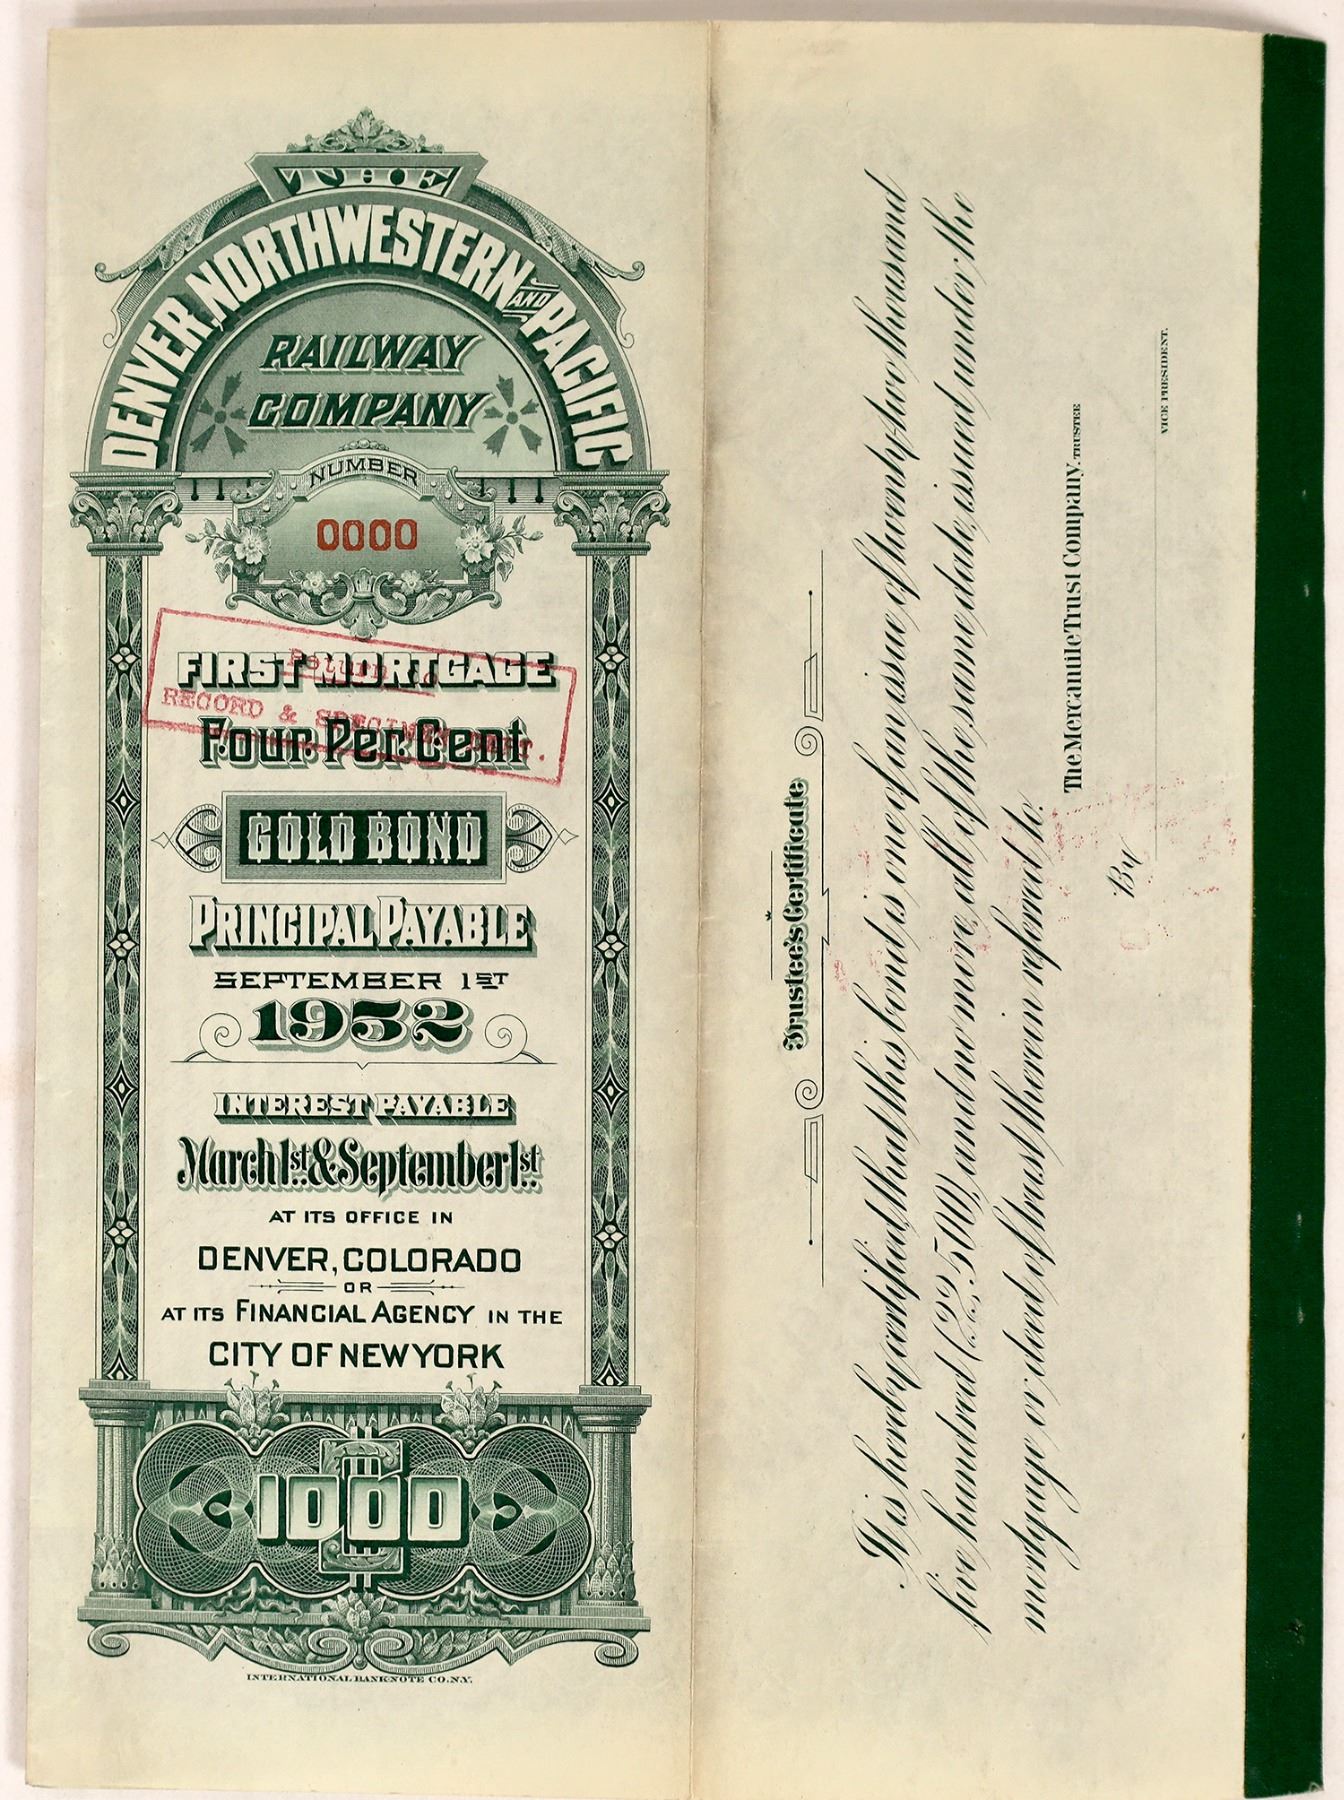 THE
DENVER, NORTHWESTERN AND PACIFIC
RAILWAY
COMPANY
NUMBER
0000
Return to
RECORD & SPECIMEN DEPT.
FIRST MORTGAGE
Four Per Cent
GOLD BOND
PRINCIPAL PAYABLE
SEPTEMBER 1ST
1952
INTEREST PAYABLE
March 1st & September 1st
AT ITS OFFICE IN
DENVER, COLORADO
OR
AT ITS FINANCIAL AGENCY IN THE
CITY OF NEW YORK
$1000
INTERNATIONAL BANK NOTE CO. N.Y.
Trustee's Certificate
It is hereby certified that this bond is one of an issue of twenty-two thousand
five hundred (22,500), and no more, all of the same date, issued under the
mortgage or deed of trust therein referred to.
The Mercantile Trust Company, TRUSTEE
By
VICE PRESIDENT.